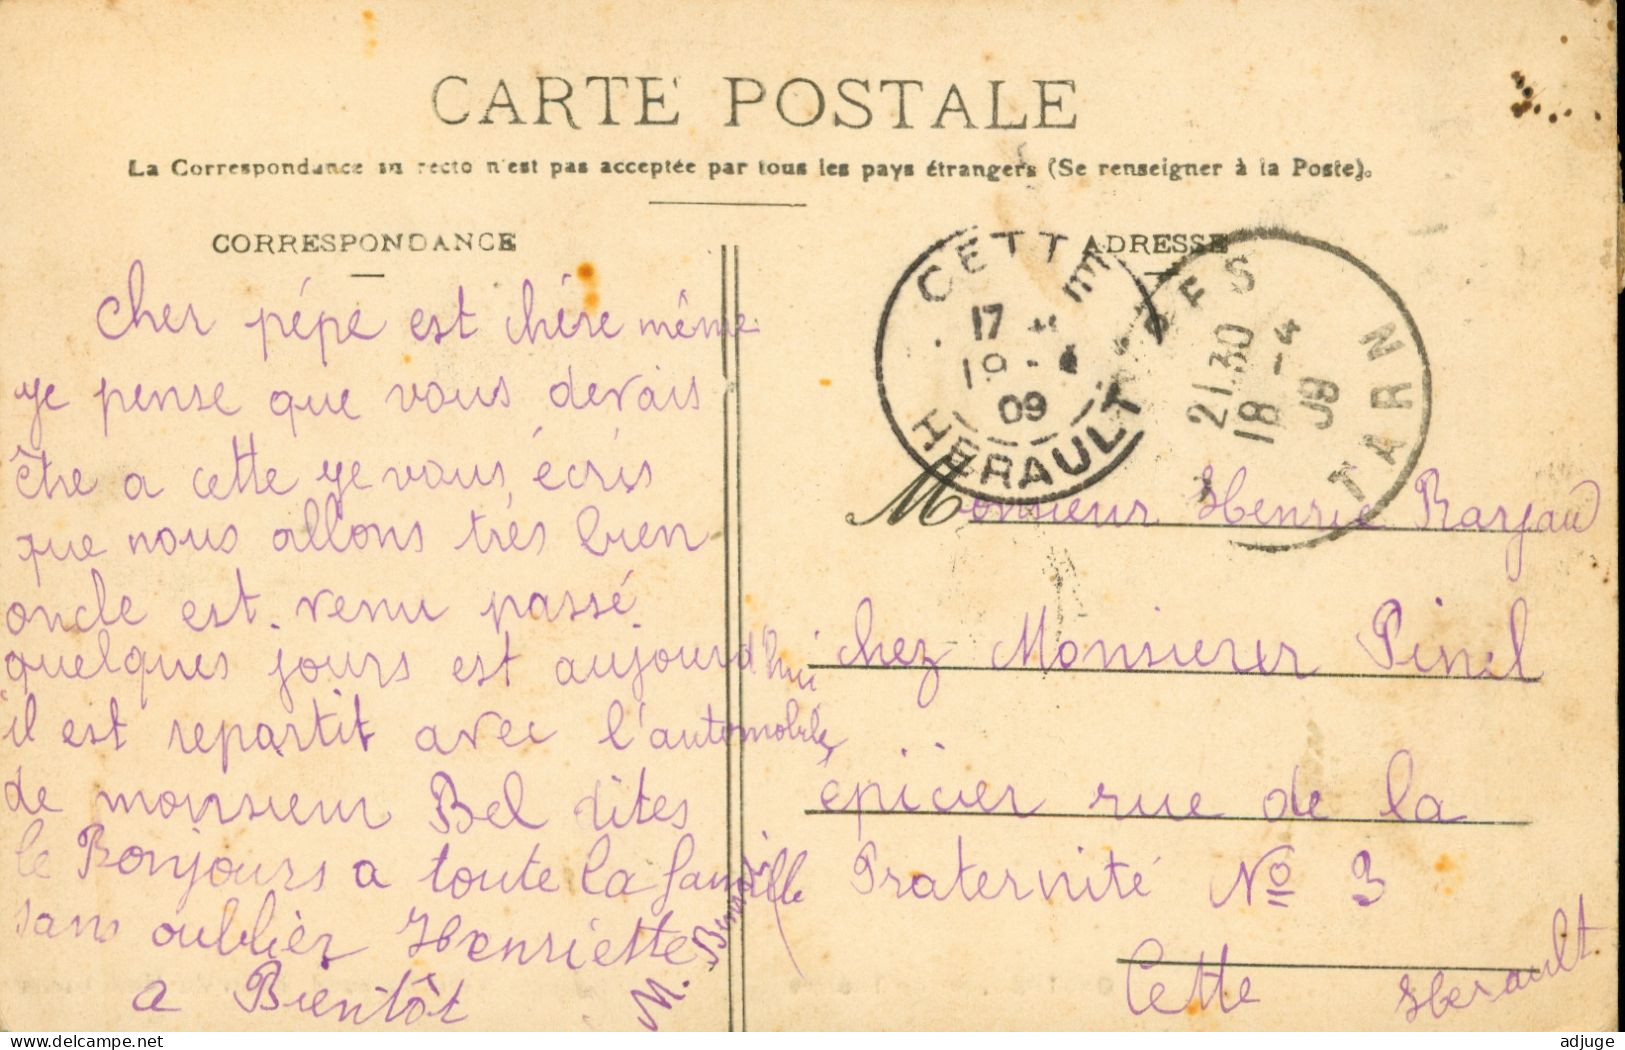 CARTE POSTALE
La Correspondance au recto n'est pas acceptée par tous les pays étrangers (Se renseigner à la Poste).
CORRESPONDANCE
Cher pépé est chère même
je pense que vous devais
être a cette je vous écris
que nous allons très bien
oncle est venu passé
quelques jours est aujourd'hui
il est repartit avec l'automobile
de monsieur Bel dites
le Bonjours a toute la famille
sans oublier Henriette
a Bientôt
M.
ADRESSE
CETTE
17
09
HERAULT
ES
21 30
18 -4
09
TARN
Monsieur Henrie
chez Monsieur Pinel
épicier rue de la
Fraternité No 3
Cette Herault
delcampe.net
adjuge